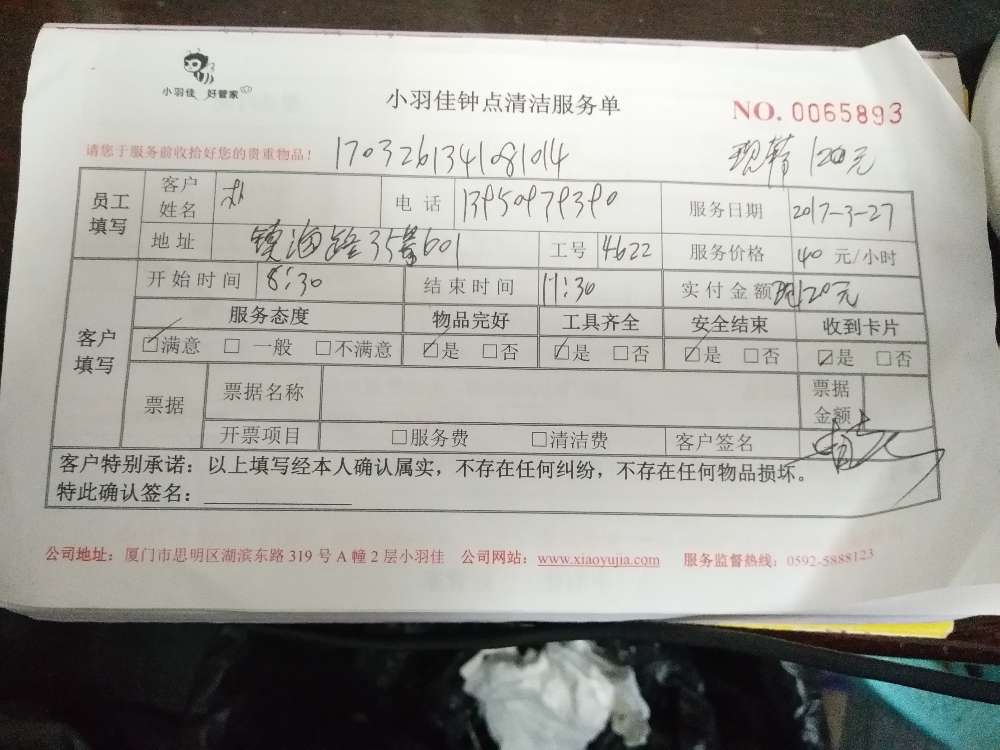 小羽佳 好管家
小羽佳钟点清洁服务单
NO. 0065893
请您于服务前收拾好您的贵重物品！
1703261341081014
现带 120元
员工填写 客户姓名 电话 13950979390 服务日期 2017-3-27
地址 镇海路35号601 工号 4622 服务价格 40 元/小时
客户填写 开始时间 8:30 结束时间 11:30 实付金额 现120元
服务态度 物品完好 工具齐全 安全结束 收到卡片
☑满意 □ 一般 □不满意 ☑是 □否 ☑是 □否 ☑是 □否 ☑是 □否
票据 票据名称 票据金额
开票项目 □服务费 □清洁费 客户签名
客户特别承诺：以上填写经本人确认属实，不存在任何纠纷，不存在任何物品损坏。
特此确认签名：
公司地址：厦门市思明区湖滨东路 319 号 A 幢 2 层小羽佳 公司网站：www.xiaoyujia.com 服务监督热线：0592-5888123